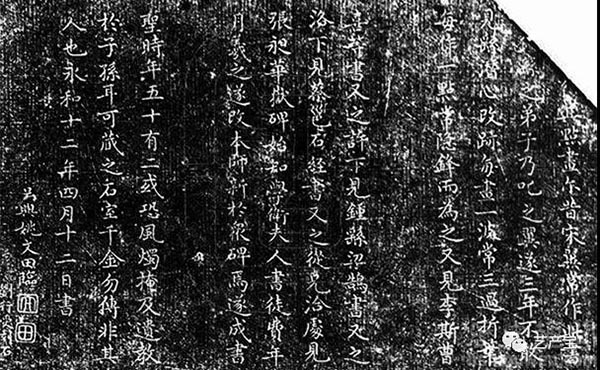 點畫尔昔宋翼常作此書
之弟子乃叱之翼遂三年不敢
見繇潛心改跡每畫一波常三過折筆
每作一點常隱鋒而為之又見李斯曹
喜等書又之許下見鍾繇梁鵠書又之
洛下見蔡邕石經書又之從兄洽處見
張昶華嶽碑始知學衛夫人書徒費年
月羲之遂改本師新於衆碑焉遂成書
聖時年五十有二或恐風燭掩及遺教
於子孫耳可藏之石室千金勿傳非其
人也永和十二年四月十二日書
吳興姚文田臨